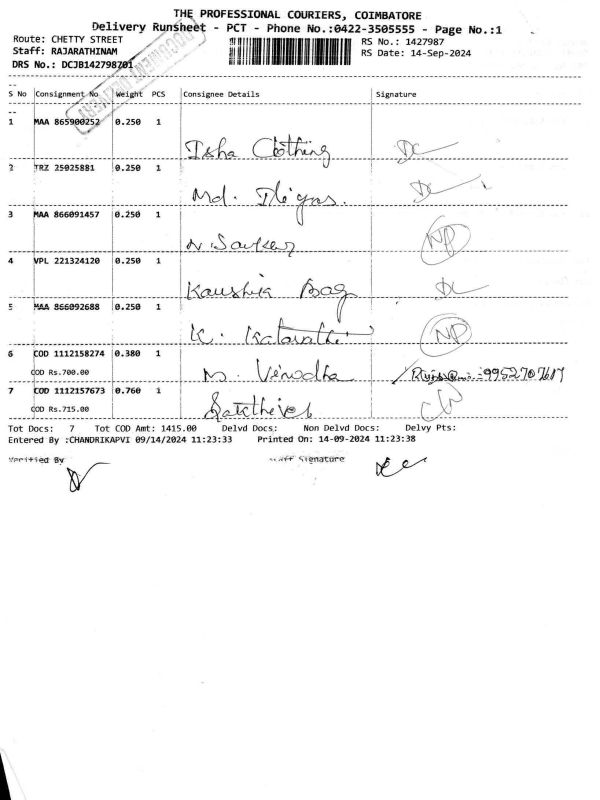 THE PROFESSIONAL COURIERS, COIMBATORE
Delivery Runsheet - PCT - Phone No.:0422-3505555 - Page No.:1
Route: CHETTY STREET
RS No.: 1427987
Staff: RAJARATHINAM
RS Date: 14-Sep-2024
DRS No.: DCJB142798701
DOCUMENT DELIVERY
S No Consignment No Weight PCS Consignee Details Signature
1 MAA 865900252 0.250 1
Isha Clothing
2 TRZ 25025881 0.250 1
Md.
3 MAA 866091457 0.250 1
N
NP
4 VPL 221324120 0.250 1
Kaushik Bag
5 MAA 866092688 0.250 1
K.
NP
6 COD 1112158274 0.380 1
COD Rs.700.00
9952707617
7 COD 1112157673 0.760 1
COD Rs.715.00
Sakthivel
Tot Docs: 7 Tot COD Amt: 1415.00 Delvd Docs: Non Delvd Docs: Delvy Pts:
Entered By :CHANDRIKAPVI 09/14/2024 11:23:33 Printed On: 14-09-2024 11:23:38
Verified By Staff Signature